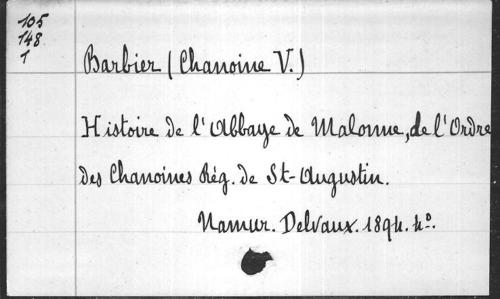 105
148
1
Barbier (Chanoine V.)
Histoire de l'Abbaye de Malonne, de l'Ordre
des Chanoines Rég. de St-Augustin.
Namur. Delvaux. 1894. 4°.